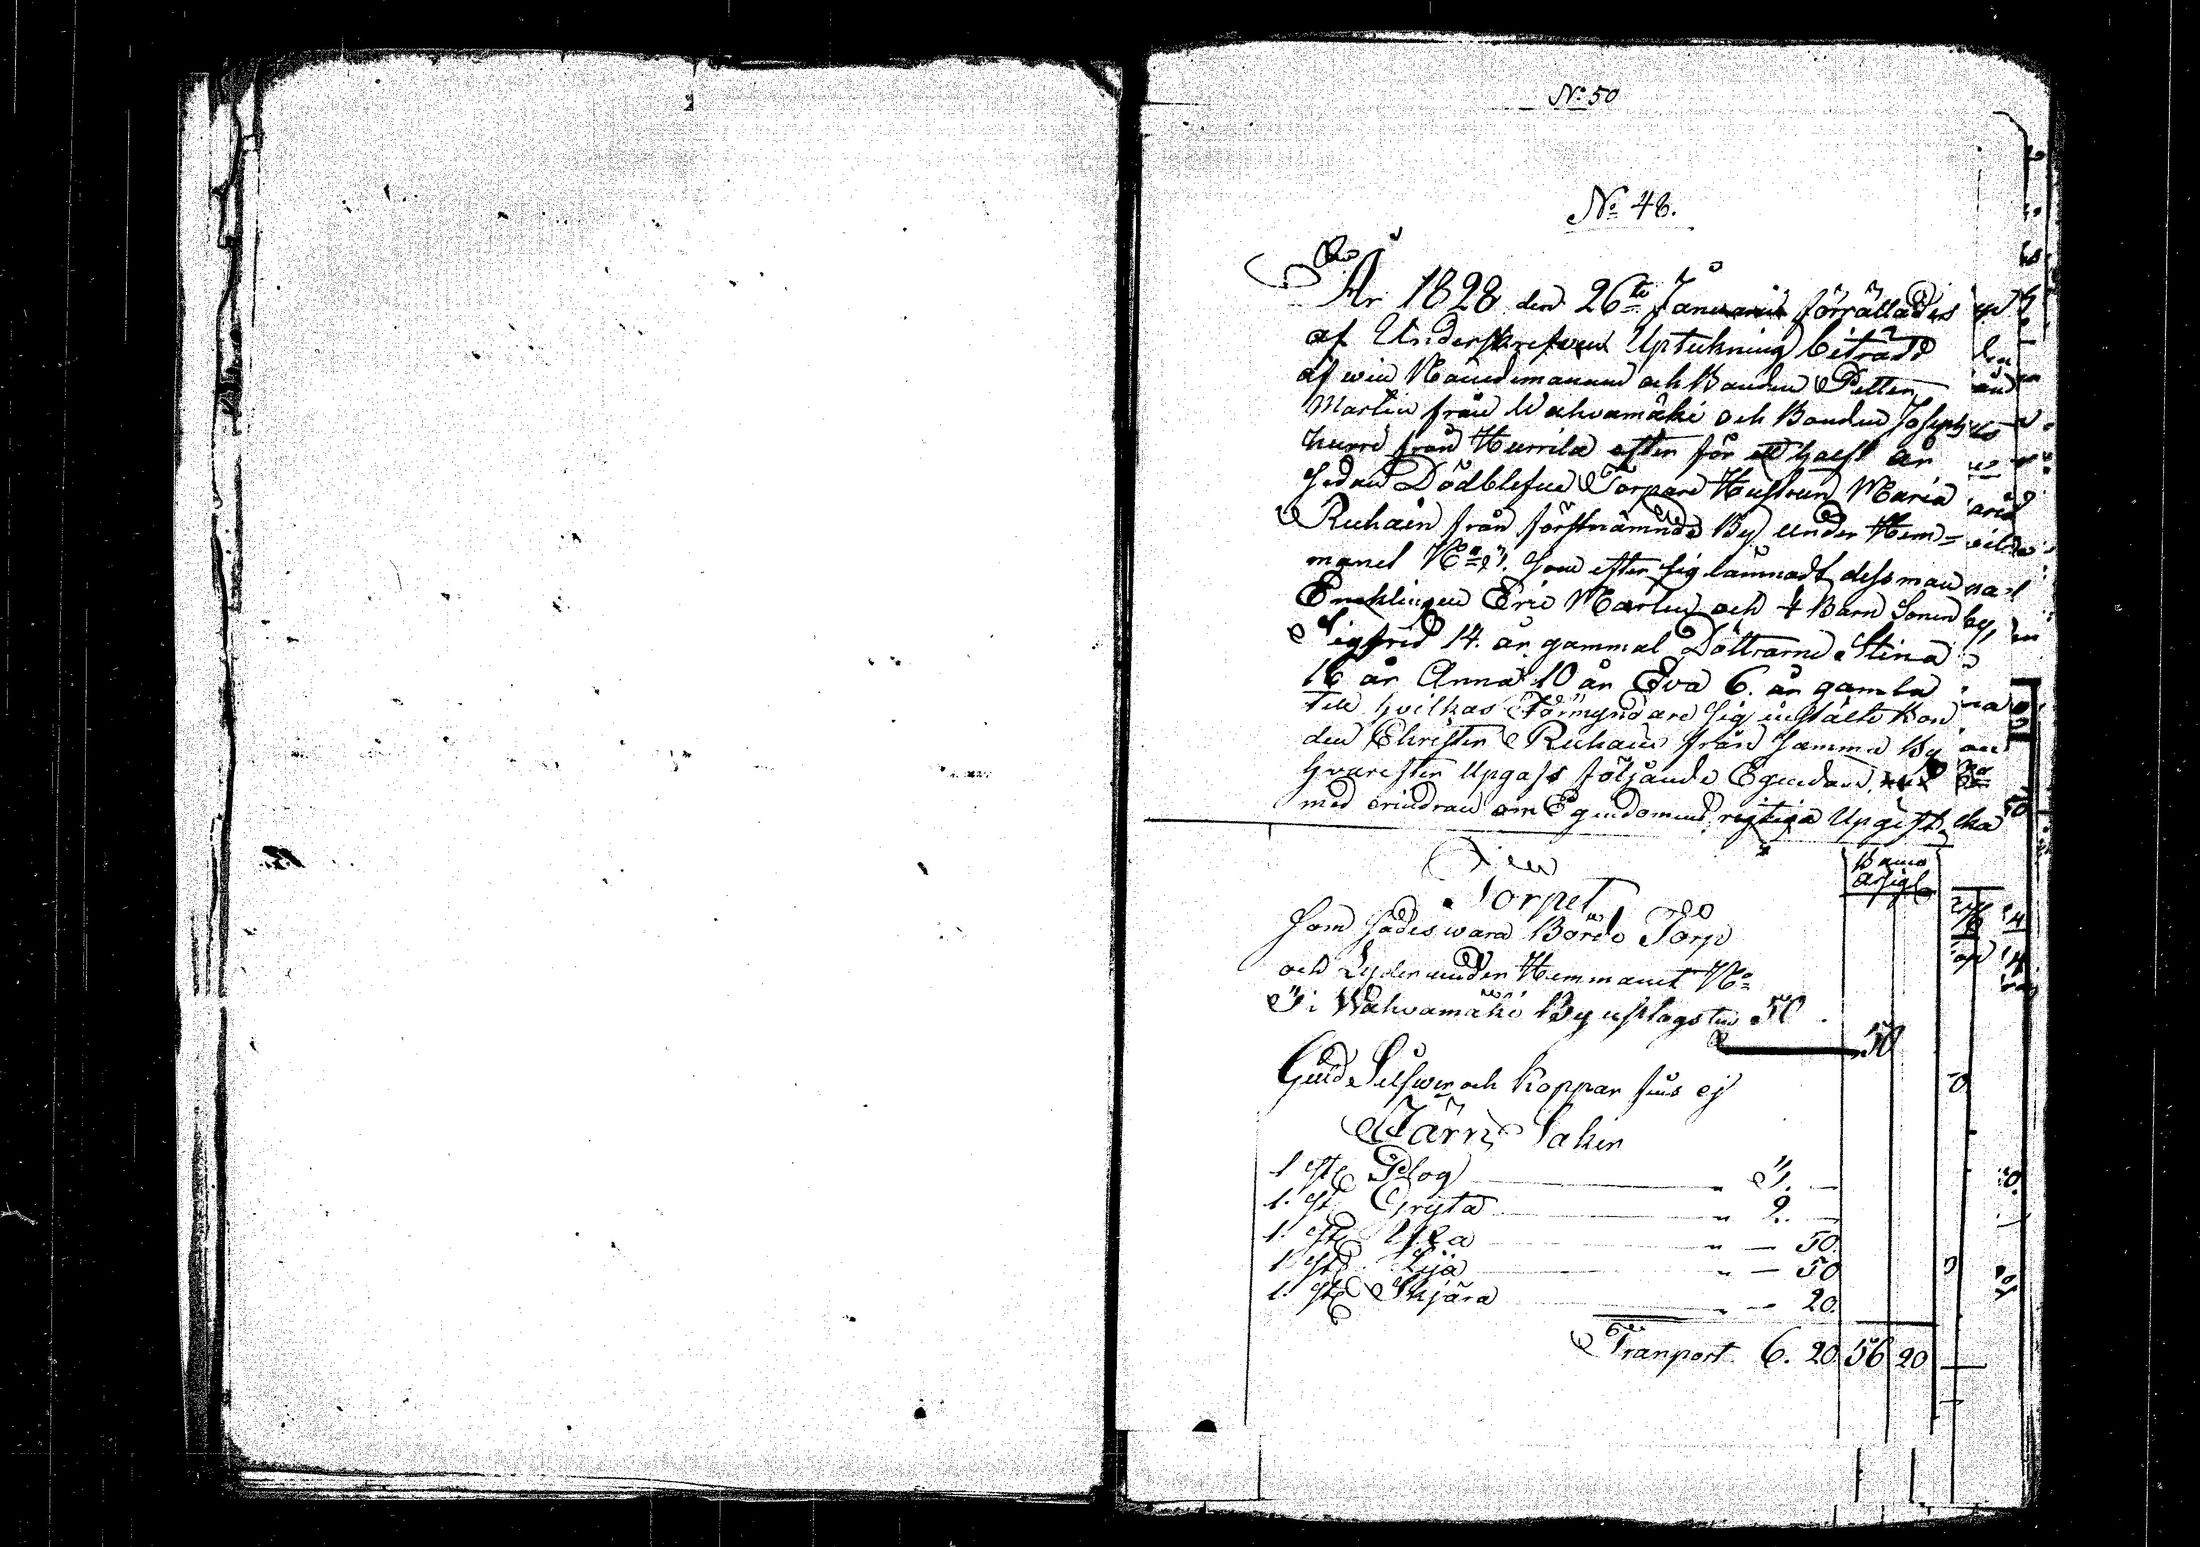 No 50
No 48.
År 1828 den 26te Januarii förrättades
af Underskrefven Uptekning biträdd
af win Nämdemannen och Bonden Petter
Martin från Wahvamäki och Bonden Joseph
hurri från Hurrila efter för ett halft år
sedan Dödblefne Torpare Hustrun Maria
Ruhain från förstnämnde By under Hem=
manet No 3. som efter sig lämnadt dess man
Encklingen Eric Martin och 4 Barn Sonen
Sigfrid 14. år gammal Döttrarne Stina
16 år Anna 10 år Eva 6. år gamla
till hvilkas Förmyndare sig instälte Bon
den Christer Ruhain från Samma By
hvarefter Upgafs följande Egendom
med erindran om Egendomens rigtiga Upgift
Banco
Assigt
Torpet
Som sades wara Börds Torp
och Lyder under Hemmanet No
3 i Wahvamäki By uptogs till 50
50
Guld Silfwer och Koppar fins ej
Järn Saker
1 st Plog " 3. —
1. st Gryta " 2. —
1. st Yxa " — 50.
1 st Lija " — 50
1. st Skjära " — 20.
Tranport 6. 20 56 20